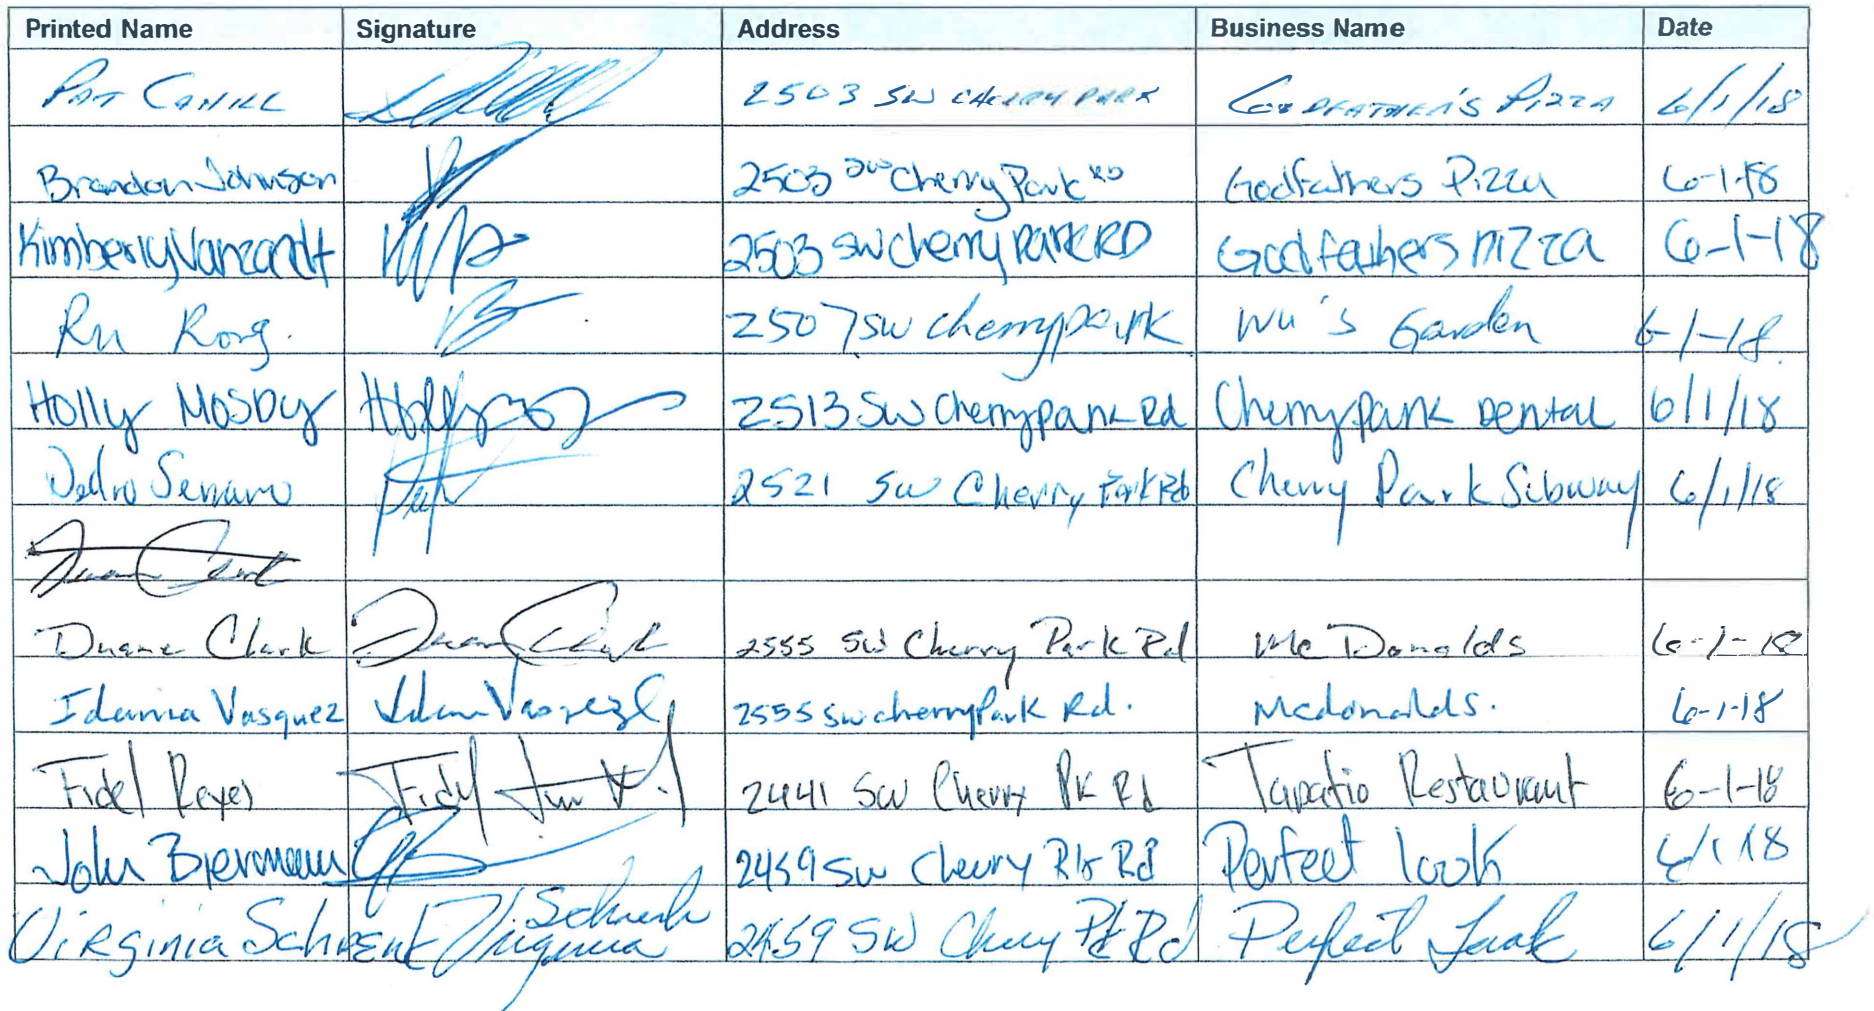 Printed Name Signature Address Business Name Date
Pat Cahill 2503 SW CHERRY PARK GODFATHER'S PIZZA 6/1/18
Brandon Johnson 2503 SW Cherry Park RD Godfathers Pizza 6-1-18
Kimberly Vanzandt 2503 SW Cherry Park RD Godfathers Pizza 6-1-18
Ru Kong. 2507 SW cherry park Wu's Garden 6-1-18
Holly Mosby 2513 SW Cherry park Rd Cherry park Dental 6/1/18
Pedro Serrano 2521 SW Cherry Park Rd Cherry Park Subway 6/1/18
Duane Clark
Duane Clark Duane Clark 2555 SW Cherry Park Rd McDonalds 6-1-18
Idania Vasquez 2555 SW cherry Park Rd. Mcdonalds. 6-1-18
Fidel Reyes Fidel 2441 SW Cherry PK Rd Tapatio Restaurant 6-1-18
John Biermann 2459 SW Cherry Pk Rd Perfect look 6/1/18
Virginia Schrent Virginia 2459 SW Cherry Pk Rd Perfect Look 6/1/18